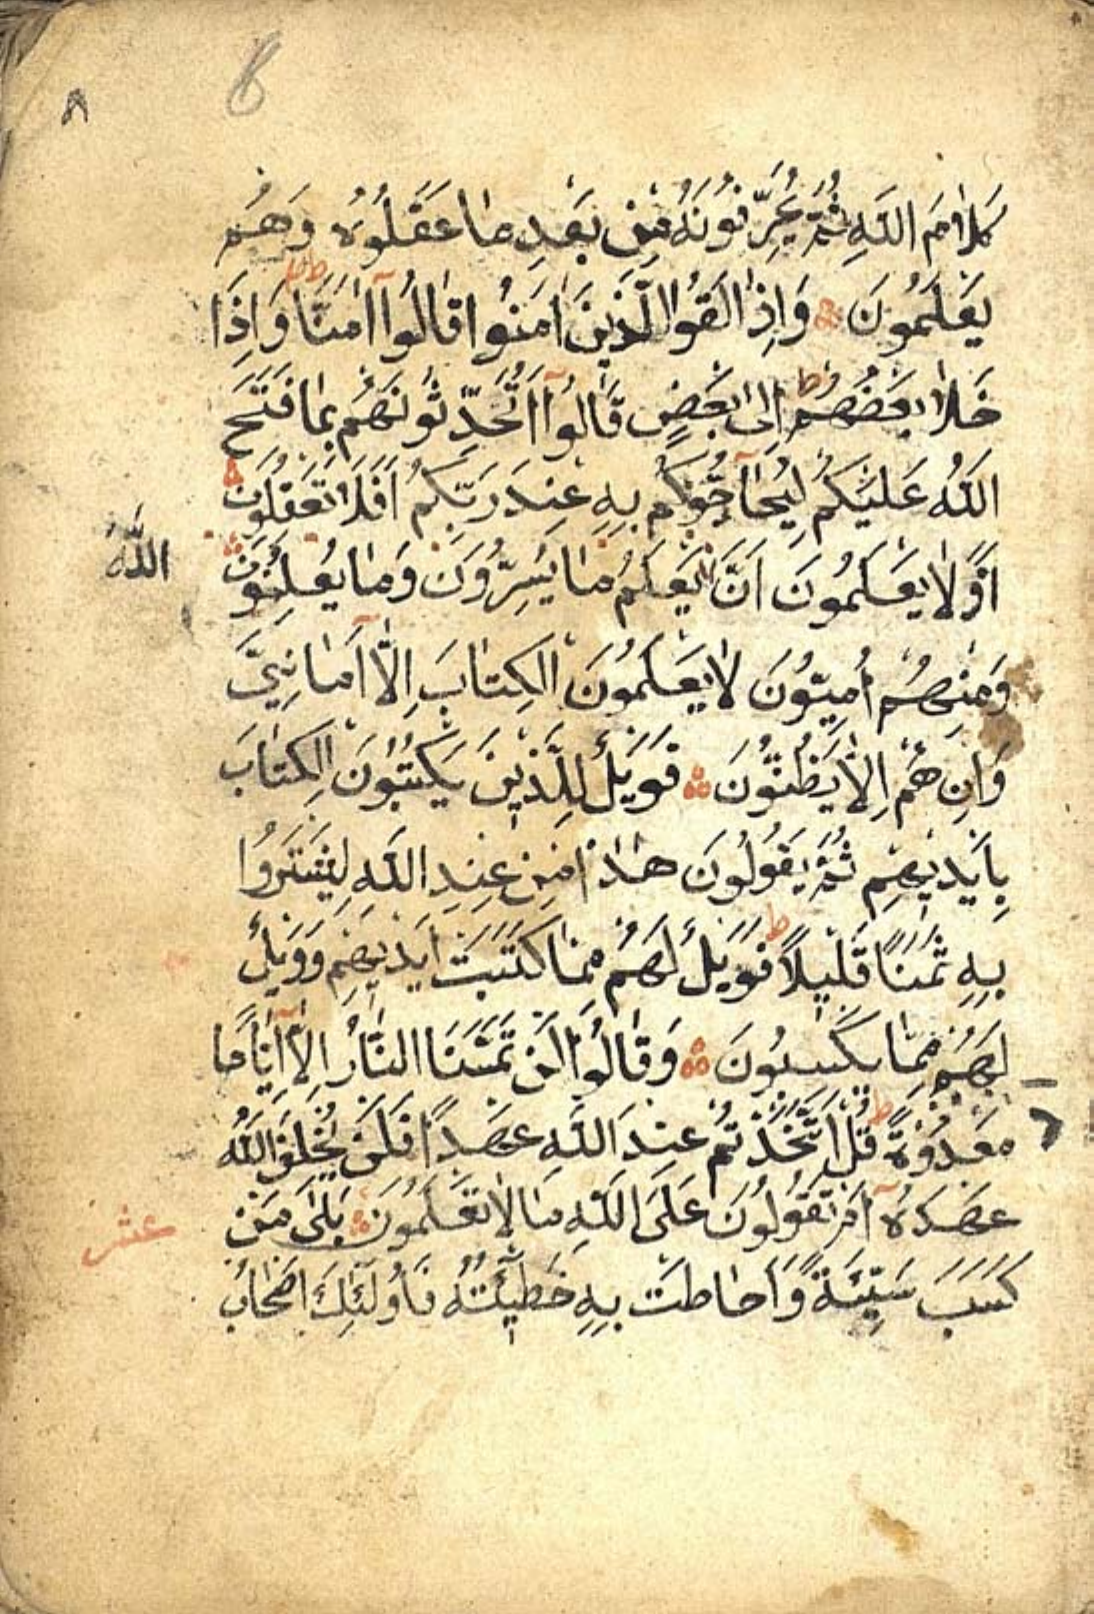 ٨
8
كَلَامَ اللَّهِ ثُمَّ يُحَرِّفُونَهُ مِنْ بَعْدِ مَا عَقَلُوهُ وَهُمْ
يَعْلَمُونَ وَإِذَا لَقُوا الَّذِينَ اٰمَنُوا قَالُوا اٰمَنَّا ط وَإِذَا
خَلَا بَعْضُهُمْ اِلٰى بَعْضٍ قَالُوا اَتُحَدِّثُونَهُمْ بِمَا فَتَحَ
اللَّهُ عَلَيْكُمْ لِيُحَاجُّوكُمْ بِهِ عِنْدَ رَبِّكُمْ اَفَلَا تَعْقِلُونَ
اَوَلَا يَعْلَمُونَ اَنَّ يَعْلَمُ مَا يُسِرُّونَ وَمَا يُعْلِنُونَ
اللّٰهَ
وَمِنْهُمْ اُمِيُّونَ لَا يَعْلَمُونَ الْكِتَابَ اِلَّا اَمَانِيَّ
وَاِنْ هُمْ اِلَّا يَظُنُّونَ فَوَيْلٌ لِلَّذِينَ يَكْتُبُونَ الْكِتَابَ
بِاَيْدِيهِمْ ثُمَّ يَقُولُونَ هٰذَا مِنْ عِنْدِ اللَّهِ لِيَشْتَرُوا
بِهِ ثَمَنًا قَلِيلًا ط فَوَيْلٌ لَهُمْ مِمَّا كَتَبَتْ اَيْدِيهِمْ وَوَيْلٌ
لَهُمْ مِمَّا يَكْسِبُونَ وَقَالُوا لَنْ تَمَسَّنَا النَّارُ اِلَّا اَيَّامًا
مَعْدُودَةً ط قُلْ اَتَّخَذْتُمْ عِنْدَ اللَّهِ عَهْدًا فَلَنْ يُخْلِفَ اللَّهُ
عَهْدَهُ اَمْ تَقُولُونَ عَلَى اللَّهِ مَا لَا تَعْلَمُونَ بَلٰى مَنْ
عشر
كَسَبَ سَيِّئَةً وَاَحَاطَتْ بِهِ خَطِيئَتُهُ فَاُولٰئِكَ اَصْحَابُ